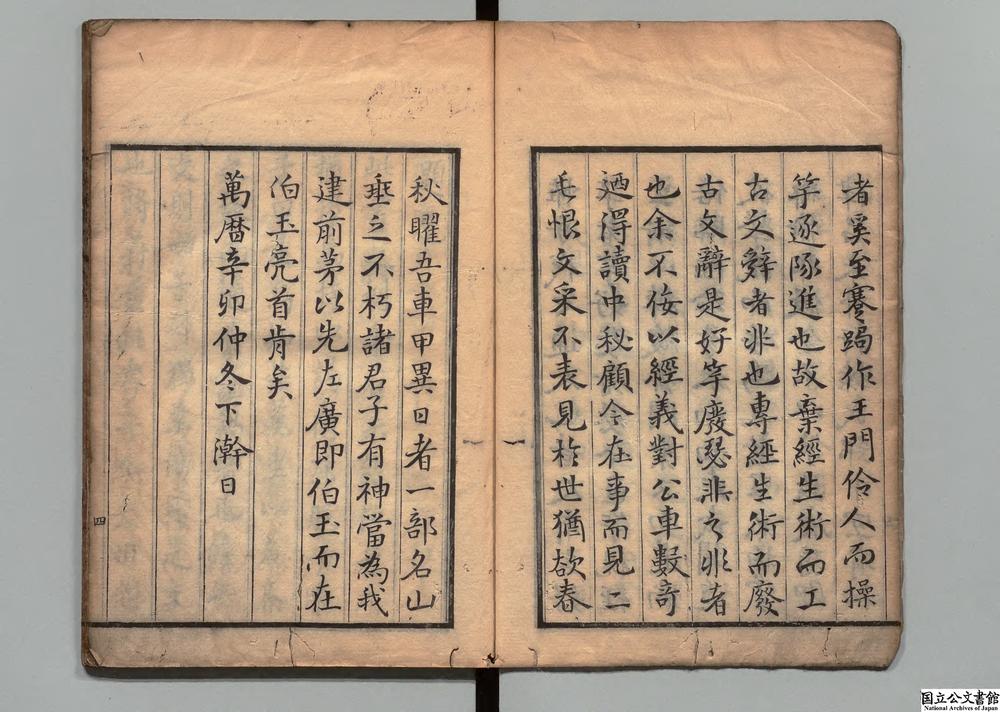 者奚至蹇跼作王門伶人而操
竽逐隊進也故棄經生術而工
古文辭者非也專經生術而廢
古文辭是好竽廢瑟非之非者
也余不佞以經義對公車數奇
迺淂讀中秘顧今在事而見二
毛恨文采不表見於世猶欲春
秋曜吾車甲異日者一部名山
垂之不朽諸君子有神當為我
建前茅以先左廣即伯玉而在
伯玉亮首肯矣
萬曆辛卯仲冬下澣日
四
国立公文書館
National Archives of Japan